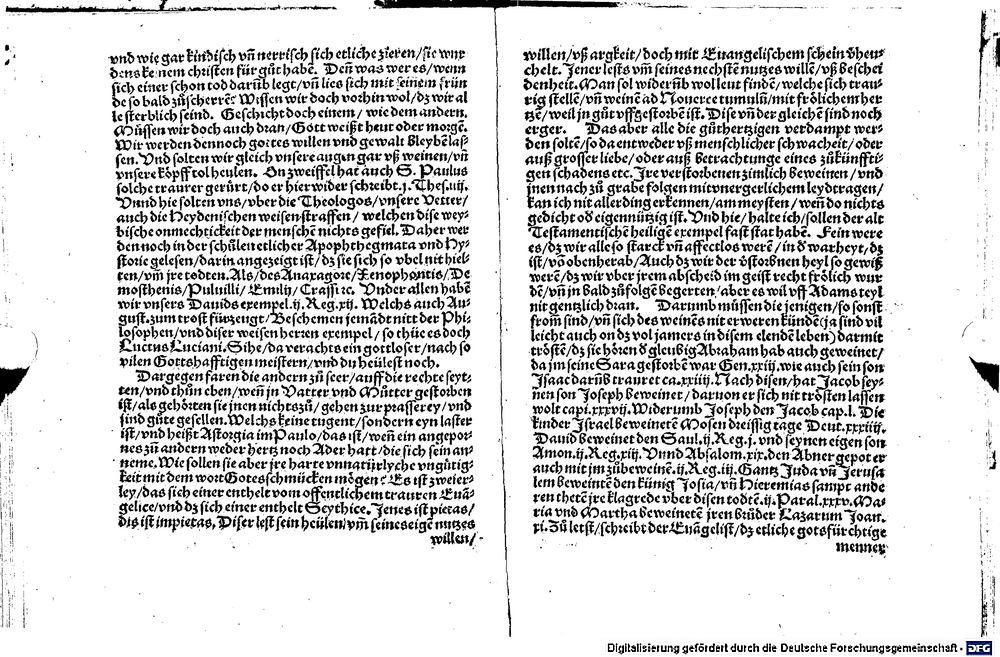 vnd wie gar kindisch vñ nerrisch sich etliche zieren/sie wur
dens keinem christen für gůt habẽ. Deñ was wer es/wenn
sich einer schon tod darũb legt/vñ lies sich mit seinem frün
de so bald zůscherrẽ? Wissen wir doch vorhin wol/dz wir al
le sterblich seind. Geschicht doch einem/ wie dem andern.
Müssen wir doch auch dran/Gott weißt heut oder morgẽ.
Wir werden dennoch gottes willen vnd gewalt bleybẽ las-
sen. Vnd solten wir gleich vnsere augen gar vß weinen/vñ
vnsere köpff tol heulen. On zweiffel hat auch S. Paulus
solche traurer gerürt/do er hier wider schreibt.j. Thes.iiij.
Vnnd hie solten vns/vber die Theologos/vnsere Vetter/
auch die Heydenischen weisen straffen/ welchen dise wey-
bische onmechtickeit der menschẽ nichts gefiel. Daher wer
den noch in der schůlen etlicher Apophthegmata vnd Hy-
storie gelesen/darin angezeigt ist/dz sie sich so vbel nit hiel-
ten/vm̃ jre todten. Als/des Anaxagore/Xenophontis/De
mosthenis/Puluilli/Emilij/Crassi ꝛc. Vnder allen habẽ
wir vnsers Dauids exempel.ij.Reg.xij. Welchs auch Au-
gust.zum trost fürzeugt/Beschemen jemãdt nitt der Phi-
losophen/vnd diser weisen herren exempel/so thüe es doch
Luctus Luciani. Sihe/da verachts ein gottloser/nach so
vilen Gottshafftigen meistern/vnd du heülest noch.
Dargegen faren die andern zů seer/auff die rechte seyt-
ten/vnd thůn eben/weñ jn Vatter vnd Můtter gestorben
ist/als gehörten sie jnen nichts zů/ gehen zur prasserey/vnd
sind gůte gesellen. Welchs keine tugent/sondern eyn laster
ist/vnd heißt Astorgia im Paulo/das ist/weñ ein angepor-
nes zũ andern weder hertz noch Ader hatt/die sich sein an-
neme. Wie sollen sie aber jre harte vnnatürlyche vngütig-
keit mit dem wort Gotes schmücken mögen? Es ist zweier-
ley/das sich einer enthelt vom offentlichem trauren Euã-
gelice/vnd dz sich einer enthelt Scythice. Jenes ist pietas/
dis ist impietas. Diser lest sein heülen/vm̃ seines eigẽ nutzes
willen/
willen/vß argkeit/doch mit Euangelischem schein v̈heu-
chelt. Jener lests vm̃ seines nechstẽ nutzes willẽ/vß beschei
denheit. Man sol widerũb wol leut findẽ/welche sich trau-
rig stellẽ/vñ weinẽ ad Nouerce tumulũ/mit frölichem her
tzẽ/weil jn gůt vffgestorbẽ ist. Dise vñ der gleichẽ sind noch
erger. Das aber alle die gůthertzigen verdampt wer-
den soltẽ/so da entweder vß menschlicher schwacheit/oder
auß grosser liebe/oder auß betrachtunge eines zůkünffti-
gen schadens etc. Jre verstorbenen zimlich beweinen/vnd
jnen nach zů grabe folgen mit vnergerlichem leydtragen/
kan ich nit allerding erkennen/am meysten/weñ do nichts
gedicht od̓ eigennützig ist. Vnd hie/halte ich/sollen der alt
Testamentischẽ heiligẽ exempel fast stat habẽ. Fein were
es/dz wir alle so starck vñ affectlos werẽ/in d̓ warheyt/dz
ist/võ oben herab/Auch dz wir der v̓storbnen heyl so gewiß
werẽ/dz wir vber jrem abscheid im geist recht frölich wur
dẽ/vñ jn bald zů folgẽ begerten/aber es wil vff Adams teyl
nit gentzlich dran. Darumb müssen die jenigen/so sonst
from̃ sind/vñ sich des weinẽs nit erweren kündẽ(ja sind vil
leicht auch on dz vol jamers in disem elenden lebẽ)darmit
tröstẽ/dz sie hörẽ d̓ gleubig Abraham hab auch geweinet/
da jm seine Sara gestorbẽ war Gen.xxiij.wie auch sein son
Jsaac darũb trauret ca.xxiiij. Nach disen/hat Jacob sey-
nen son Joseph beweinet/daruon er sich nit trösten lassen
wolt capi.xxxvij. Widerumb Joseph den Jacob cap.l. Die
kinder Jsrael beweinetẽ Mosen dreissig tage Deut.xxxiiij.
Dauid beweinet den Saul.ij.Reg.j.vnd seynen eigen son
Amon.ij.Reg.xiij. Vnnd Absalom.xix.den Abner gepot er
auch mit jm zůbeweinẽ.ij.Reg.iij. Gantz Juda vñ Jerusa
lem beweintẽ den künig Josia/vñ Hieremias sampt ande
ren thetẽ jre klagrede vber disen todtẽ.ij.Paral.xxxv. Ma-
ria vnd Martha beweinetẽ jren brüder Lazarum Joan.
xi. Zů letst/schreibt der Euãgelist/dz etliche gotsfürchtige
menner
Digitalisierung gefördert durch die Deutsche Forschungsgemeinschaft - DFG